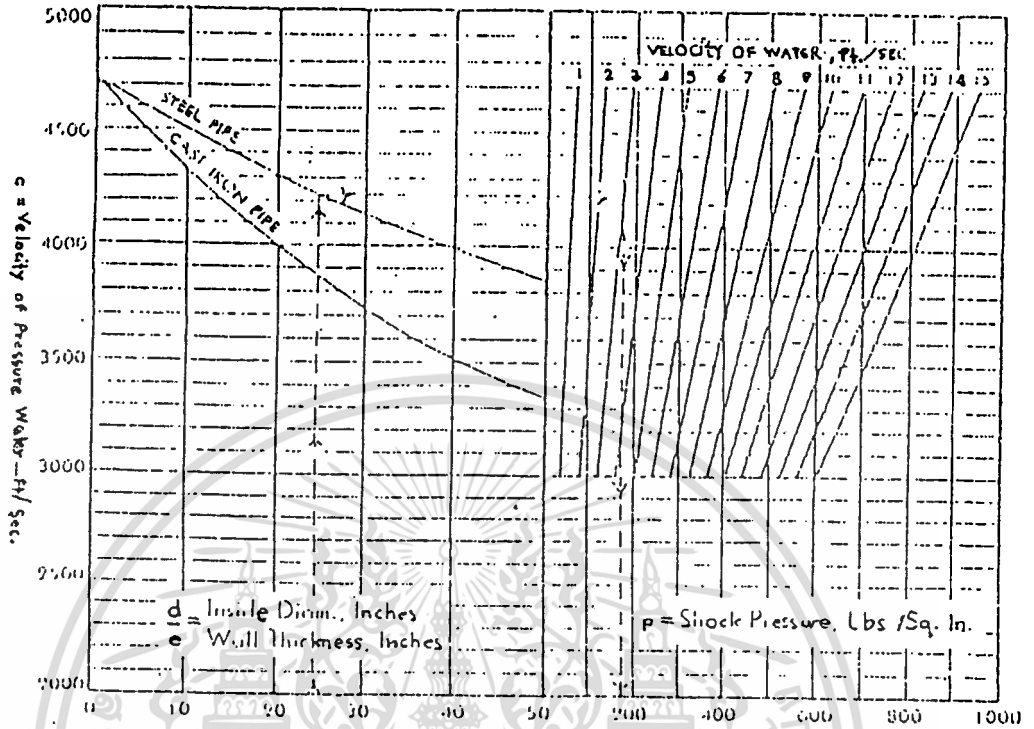 5000
4500
4000
3500
3000
2500
2000
c = Velocity of Pressure Water—ft/Sec.
STEEL PIPE
CAST IRON PIPE
VELOCITY OF WATER, Ft./SEC.
1 2 3 4 5 6 7 8 9 10 11 12 13 14 15
d = Inside Diam., Inches
e Wall Thickness, Inches
P = Shock Pressure, Lbs /Sq. In.
0 10 20 30 40 50 200 400 600 800 1000